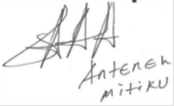 Anteneh
mitiku